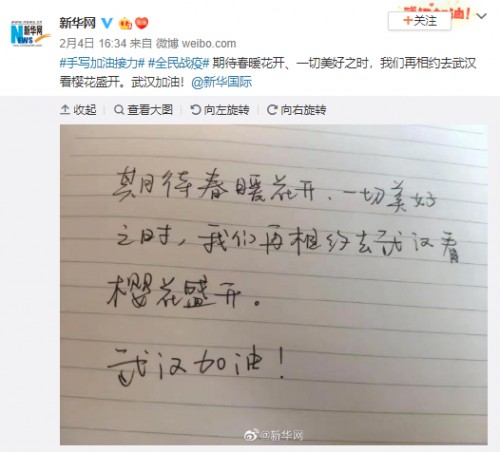 www.news.cn
新华网
NEWS
新华网
+关注
2月4日 16:34 来自 微博 weibo.com
#手写加油接力# #全民战疫# 期待春暖花开、一切美好之时，我们再相约去武汉
看樱花盛开。武汉加油！@新华国际
收起 查看大图 向左旋转 向右旋转
期待春暖花开、一切美好
之时，我们再相约去武汉看
樱花盛开。
武汉加油！
@新华网